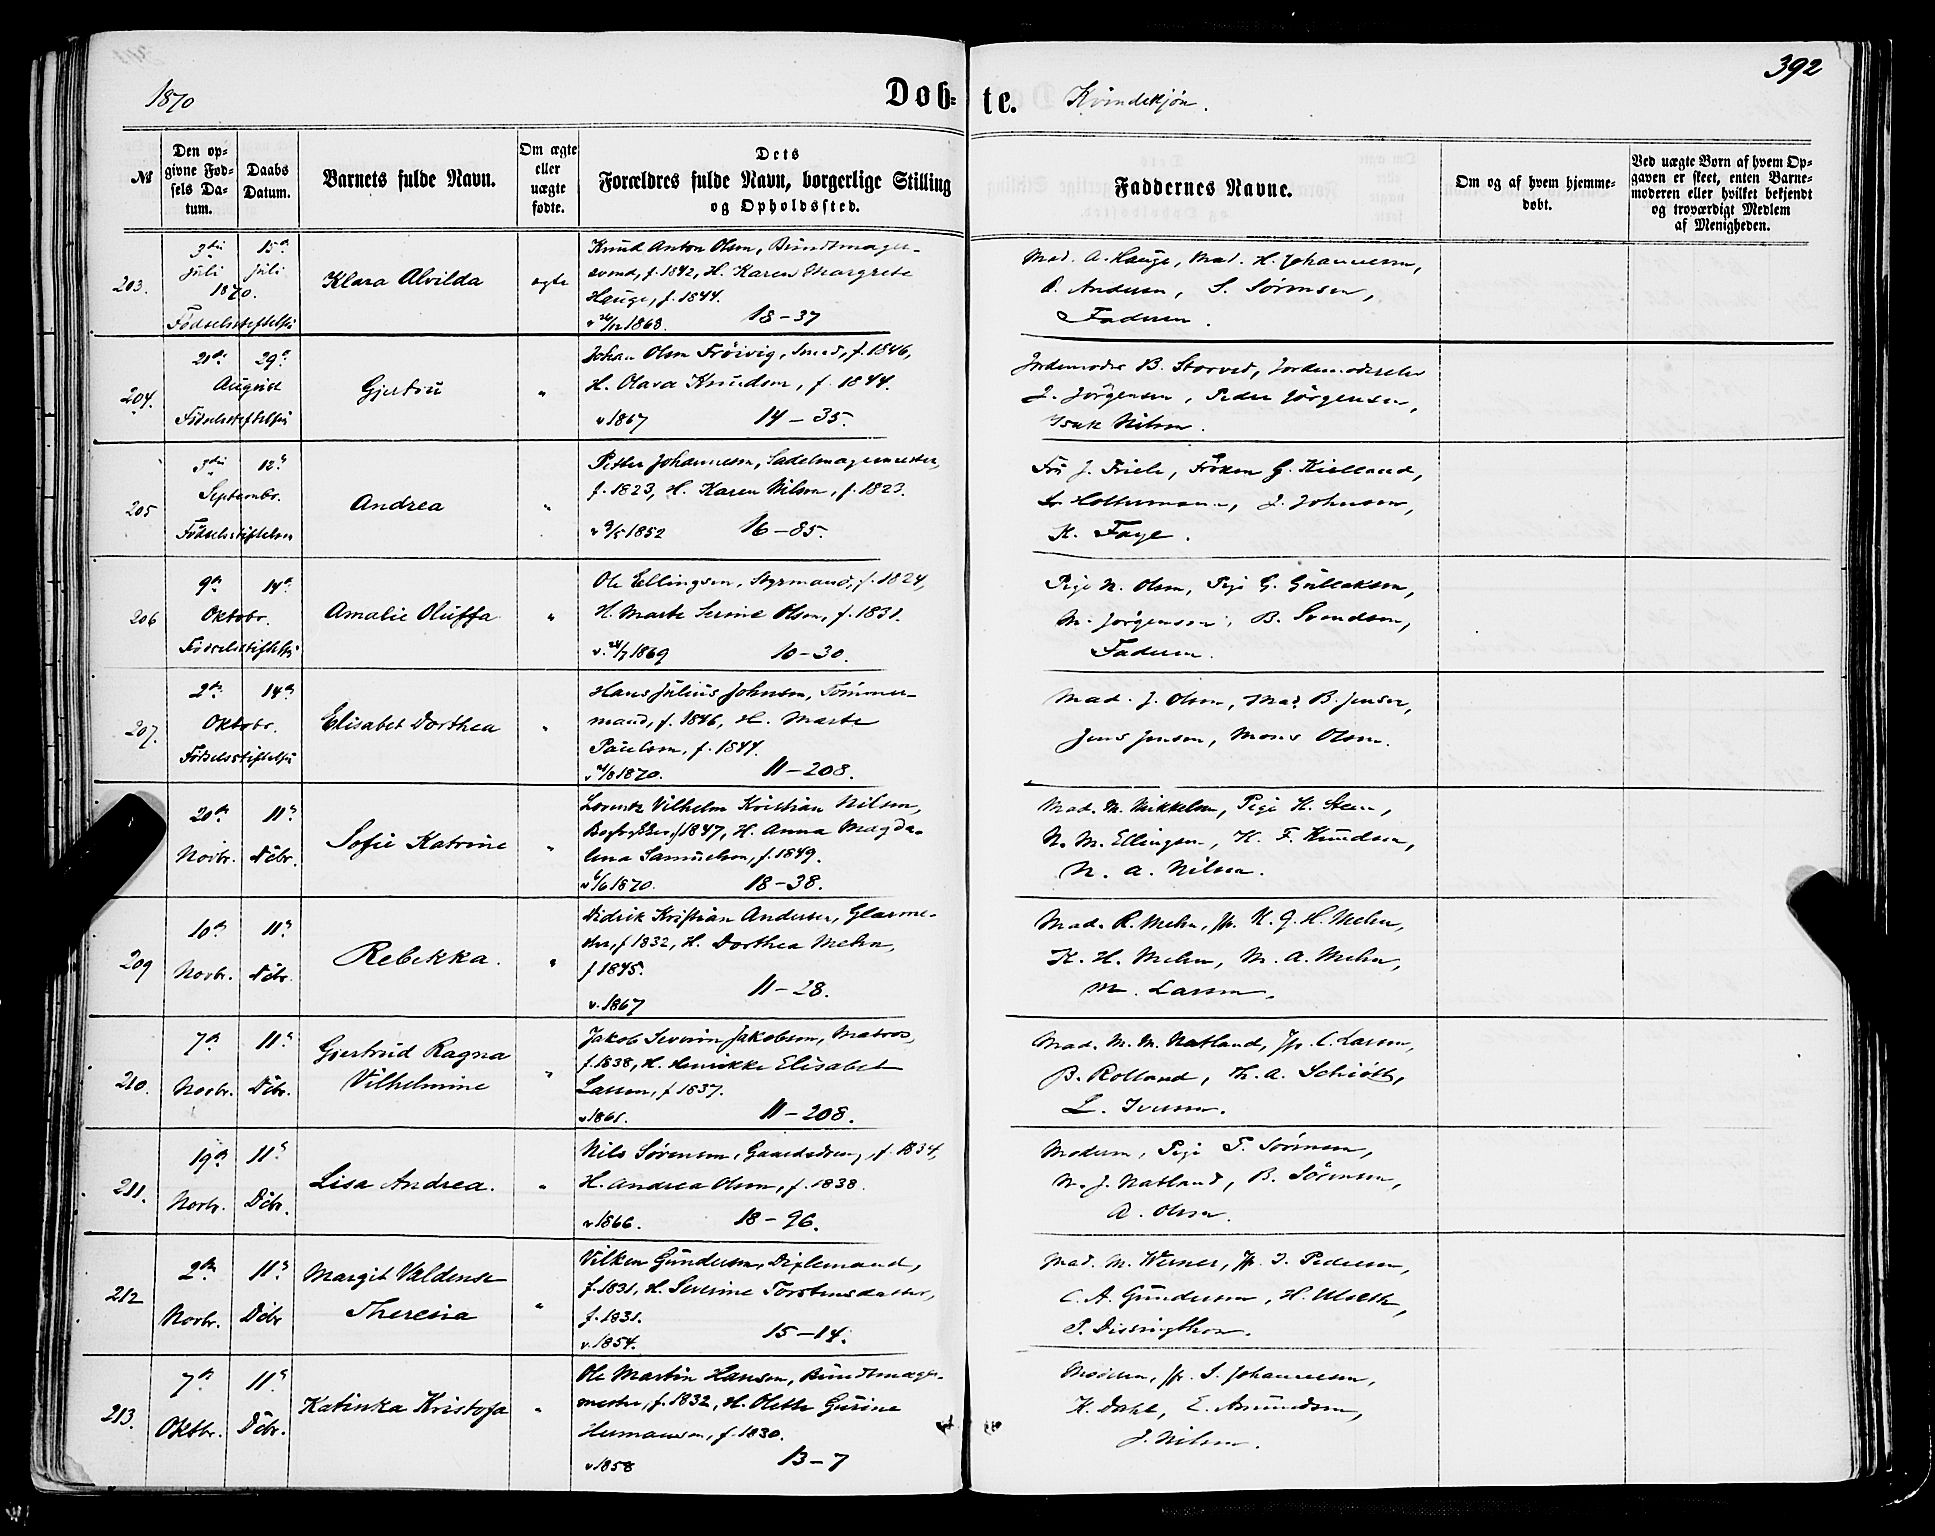 392
1870
Døb-te. Kvindekjøn.
№
Den op-
givne Fød-
sels Da-
tum.
Daabs
Datum.
Barnets fulde Navn.
Om ægte
eller
uægte
fødte.
Dets
Forældres fulde Navn, borgerlige Stilling
og Opholdssted.
Faddernes Navne.
Om og af hvem hjemme-
døbt.
Ved uægte Børn af hvem Op-
gaven er skeet, enten Barne-
moderen eller hvilket bekjendt
og troværdigt Medlem
af Menigheden.
203.
3die 15de
Juli Juli
1870.
Fødselsstiftelsen
Klara Alvilda
ægte
Knud Anton Olsen, Bundtmager-
svend, f. 1842, H. Karen Margrete
Hauge, f. 1844.
1868. 18-37
Mad. A. Hauge, Mad. H. Johannesen,
A. Andersen, S. Sørensen,
Faderen.
204.
21de 29de
August
Fødselsstiftelsen
Gjertru
"
Johan Olsen Frøivig, Smed, f. 1846,
H. Olava Knudsen, f. 1844.
v 1867 14-35.
Jordemoder B. Storved, Jordemoderelev
J. Jørgensen, Peder Jørgensen,
Isak Nilsen.
205
3die 12te
Septembr.
Fødselsstiftelsen
Andrea
"
Petter Johannesen, Sadelmagermester,
f. 1823, H. Karen Nilsen, f. 1823.
v 9/5 1852 16-85.
Fru J. Friele, Frøken G. Kielland,
J. Johnsen,
K. Faye.
206
9de 14de
Oktobr.
Fødselsstiftelsen
Amalie Oluffa
"
Ole Ellingsen, Styrmand, f. 1824,
H. Marte Serine Olsen, f. 1831.
v. 24/7 1869 10-30.
Pige N. Olsen, Pige G. Gullaksen,
M. Jørgensen, B. Svendsen,
Faderen.
207.
2den 14de
Oktobr.
Fødselsstiftelsen
Elisabet Dorthea
"
Hans Julius Johnsen, Tømmer-
mand, f. 1846, H. Marte
Paulsen, f. 1844.
1870. 11-208.
Mad. J. Olsen, Mad. B. Jensen,
Jens Jensen, Mons Olsen.
20de 11te
Novbr. Dcbr.
Sofie Katrine
"
Lorentz Vilhelm Kristian Nilsen,
f 1847, H. Anna Magda-
lena Samuelsen, f. 1849.
v 6/6 1870. 18-38.
Mad. M. Mikkelsen, Pige K. Steen,
N. M. Ellingsen, K. F. Knudsen,
N. A. Nilsen.
209
10de 11te
Novbr. Dcbr.
Rebekka.
"
Didrik Kristian Andersen, Glarme-
ster, f 1832, H. Dorthea Mehn,
f 1845.
v. 1867 11-28.
Mad. R. Mehn, Jfr. K. J. H. Mehn,
K. H. Mehn, M. A. Mehn,
M. Larsen.
210.
7de 11te
Novbr. Dcbr.
Gjertrud Ragna
Vilhelmine
"
Jakob Severin Jakobsen, Matros,
f. 1838, H. Henrikke Elisabet
Larsen, f 1837.
v 1861. 11-208.
Mad. M. M. Natland, Jfr. C. Larsen,
B. Rolland, Th. A. Schiøtt,
L. Iversen.
211.
19de 11te
Novbr. Dcbr.
Lisa Andrea.
"
Nils Sørensen, Gaardsdreng, f. 1834,
H. Andrea Olsen, f. 1838.
v 1866. 18-96.
Moderen, Pige T. Sørensen,
N. J. Natland, B. Sørensen,
A. Olsen.
212
2den 11te
Novbr. Dcbr
Margit Valdense
Theresia
"
Vilken Gundersen, Diplemand,
f. 1831, H. Severine Torstensdatter,
f. 1831.
v. 1854. 15-14.
Mad. M. Werner, Jfr. I. Pedersen,
C. A. Gundersen, H. Ulseth,
P. Dissingthon.
213.
7de 11te
Oktbr. Dcbr.
Katinka Kristofa
"
Ole Martin Hansen, Bundtmager-
mester, f. 1832, H. Olette Gurine
Hermansen, f. 1830.
v 1858 13-7
Moderen, Jfr. S. Johannesen,
K. Dahl, E. Amundsen,
J. Nilsen.